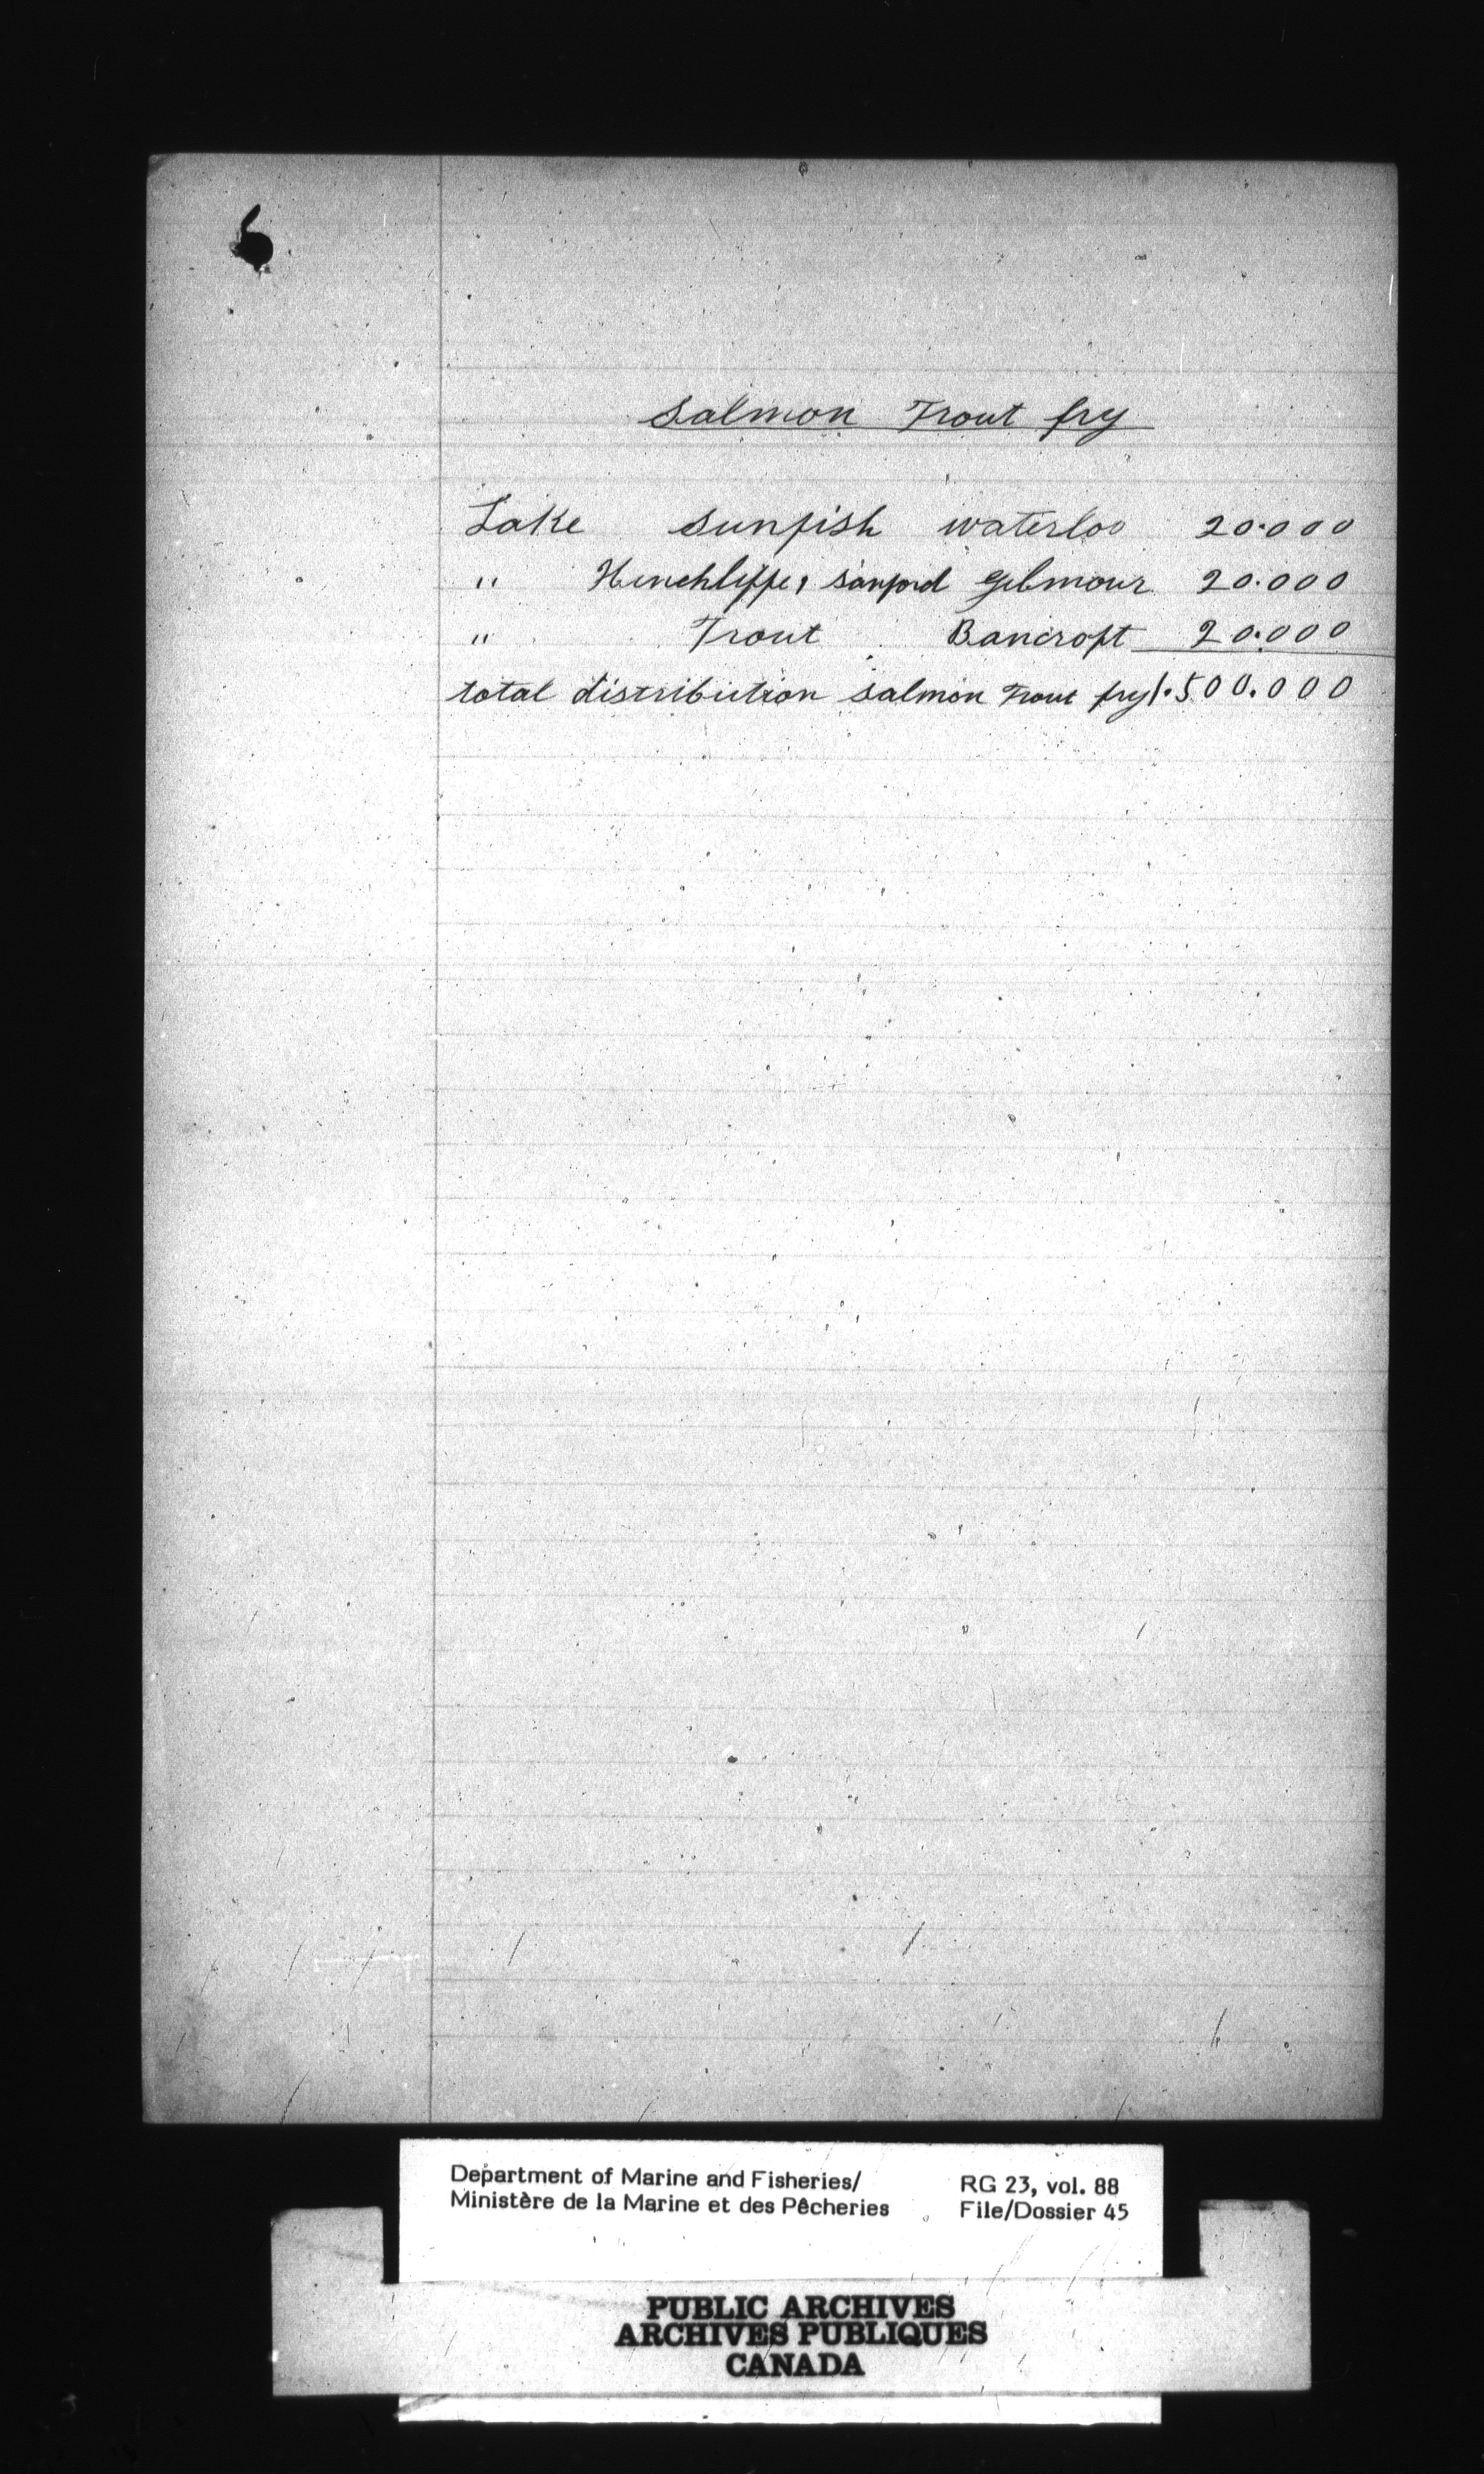 6
Salmon Trout fry
Lake Sunfish Waterloo 20.000
" Hinchliffe, Sanford Gilmour 20.000
" Trout Bancroft 20.000
total distribution salmon Trout fry 1.500.000
Department of Marine and Fisheries/ RG 23, vol. 88
Ministère de la Marine et des Pêcheries File/Dossier 45
PUBLIC ARCHIVES
ARCHIVES PUBLIQUES
CANADA